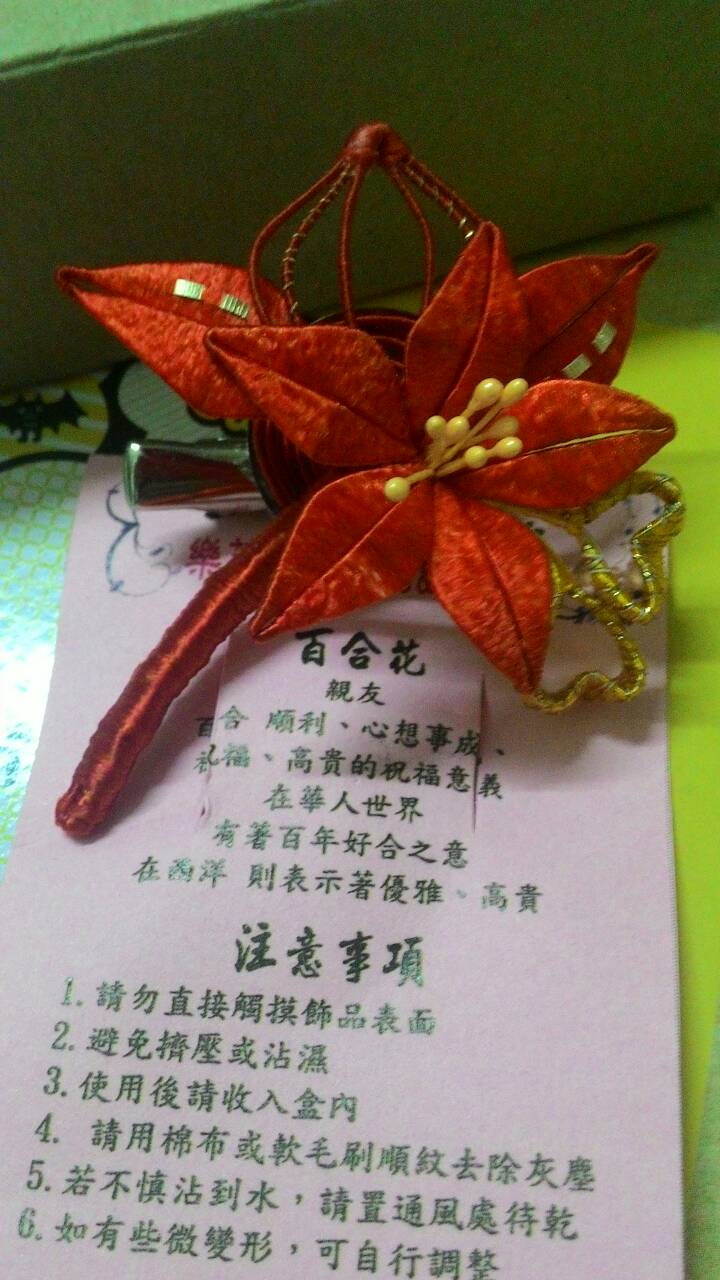 樂
百合花
親友
百合 順利、心想事成、
祝福、高貴的祝福意義
在華人世界
有著百年好合之意
在西洋 則表示著優雅、高貴
注意事項
1. 請勿直接觸摸飾品表面
2. 避免擠壓或沾濕
3. 使用後請收入盒內
4. 請用棉布或軟毛刷順紋去除灰塵
5. 若不慎沾到水，請置通風處待乾
6. 如有些微變形，可自行調整